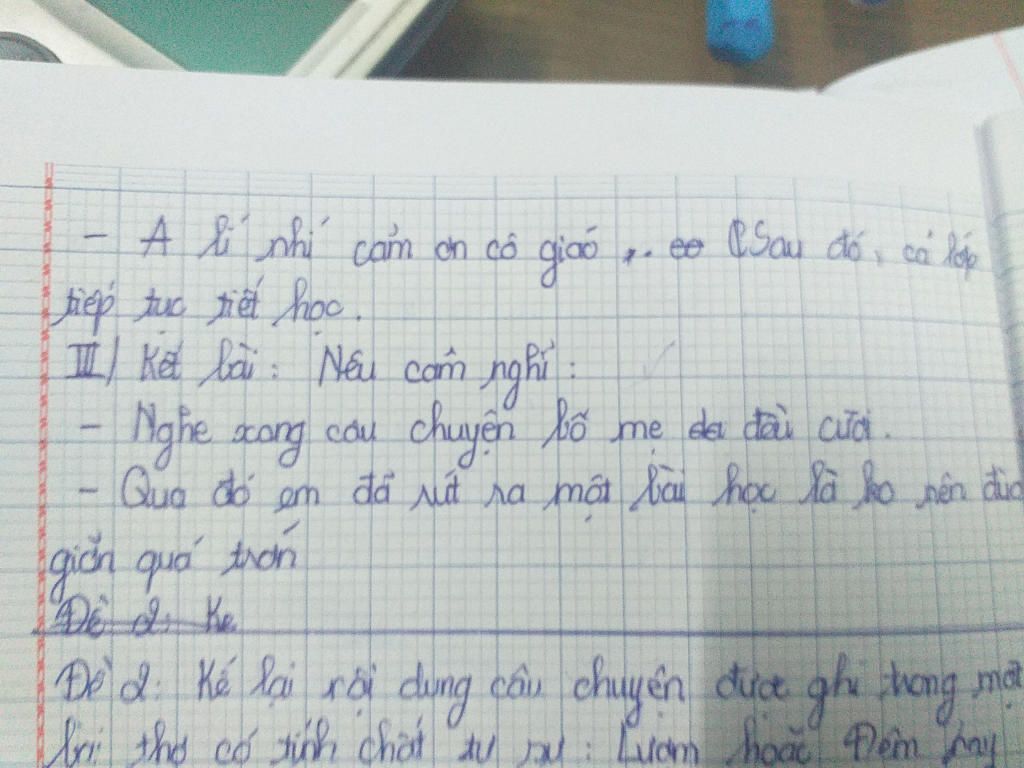 - A lí nhí cảm ơn cô giáo ... Sau đó, cả lớp
tiếp tục tiết học.
III/ Kết bài: Nêu cảm nghĩ:
- Nghe xong câu chuyện bố mẹ cười.
- Qua đó em đã rút ra một bài học là ko nên đùa
giỡn quá trớn
Đề 2: Kể
Đề 2: Kể lại nội dung câu chuyện được ghi trong một
bài thơ có tính chất tự sự: Lượm hoặc Đêm nay